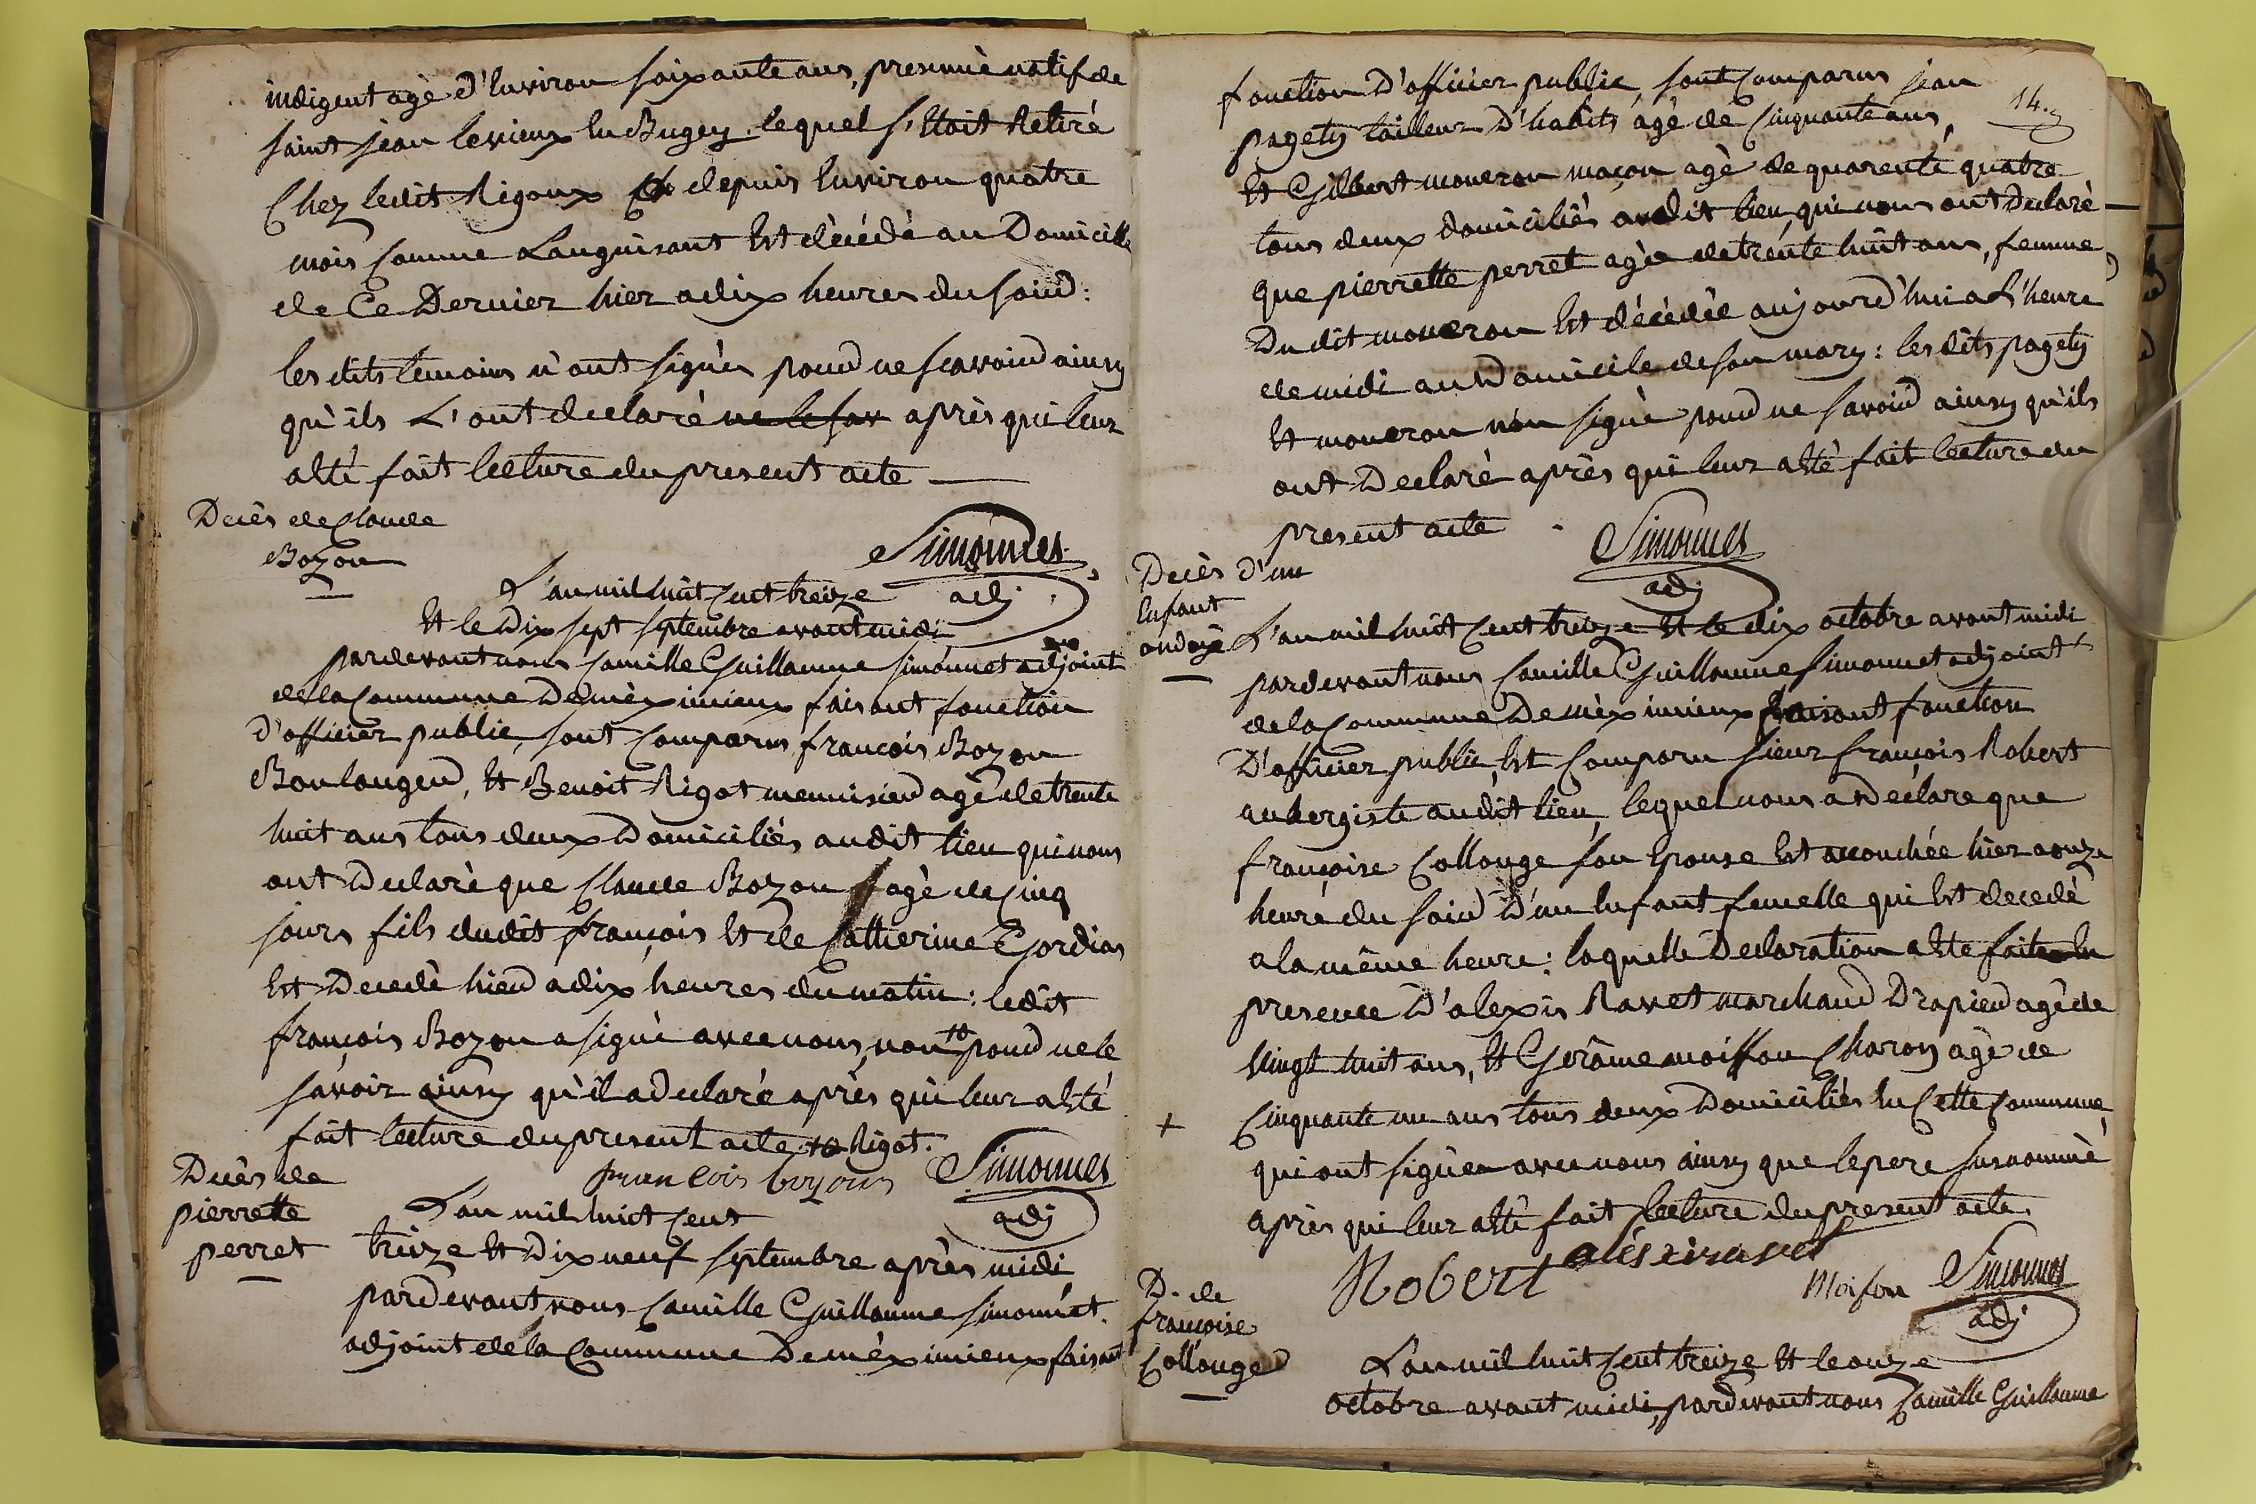 indigent agè d'Environ soixante ans, presumè natif de
saint jean levieux En Bugey. lequel s'Etoit Retiré
Chez ledit Rigoux depuis Environ quatre
mois comme Languisant Est dècédè au Domicille
de Ce Dernier hier adix heures du soird:
les dits temoins n'ont signès pourd ne scavoird ainsy
qu'ils L'ont declarè ne le sav après qui leur
aEtè fait lecture du present acte —
Decès de Claude
Bozon
Simonnet
adj
L'an mil huit cent treize
Et le Dix sept septembre avant midi
pardevant nous Camille Guillaume Simonnet adjoint
de la Commune De mèximieux faisant fonction
d'officier public, sont Comparus françois Bozon
Boulangerd, Et Benoit Rigot menuisierd agè de trente
huit ans tous deux Domiciliès audit lieu qui nous
ont Declarè que Claude Bozon agè de Cinq
jours fils dudit françois Et de Catherine Gordias
Est Decedè hierd adix heures du matin: ledit
françois Bozon a signè avec nous, non ++ pourd ne le
savoir ainsy qu'il a declaré après qui leur aEtè
fait lecture du present acte. ++ Rigot.
francois bozon
Simonnet
adj
Decès de
pierrette
perret
L'an mil huit Cent
treize Et Dix neuf septembre après midi
pardevant nous Camille Guillaume Simonnet.
adjoint de la Commune De mèximieux faisant
14.
fonction D'officier public, sont Comparus jean
pagety tailleur D'habits agè de Cinquante ans,
Et Gilbert moneron maçon agè de quarente quatre
tous deux domiciliès audit lieu, qui nous ont Declarè
que pierrette perret agèe de trente huit ans, femme
Dudit moneron Est décèdèe aujourd'hui a L'heure
de midi au Domicile de son mary: les dits pagety
Et moneron n'on signè pourd ne savoird ainsy qu'ils
ont Declarè après qui leur aEtè fait lecture du
present acte.
Simonnet
adj
Decès d'un
Enfant
ondoyè
L'an mil huit Cent treize Et le dix octobre avant midi
pardevant nous Camille Guillaume Simonnet adjoint
de la Commune De mèximieux faisant fonction
D'officier public, Est Comparu sieur françois Robert
aubergiste audit lieu, lequel nous a Declare que
françoise Collonge son Epouse Est accouchée hier a onze
heure du soird D'un Enfant femelle qui Est decedè
a la même heure: laquelle Declaration aEte faite En
presence D'alexis Ravet marchand Drapierd agè de
Vingt huit ans, Et Gerâme moisson Charon agè de
+ Cinquante un ans tous deux Domiciliès En Cette Commune,
qui ont signès avec nous ainsy que le pere susnommè
après qui leur aEtè fait lecture du present acte.
Robert
alesxiravet
Moison
Simonnet
adj
D. de
françoise
Collonge
L'an mil huit Cent treize Et le onze
octobre avant midi, pardevant nous Camille Guillaume